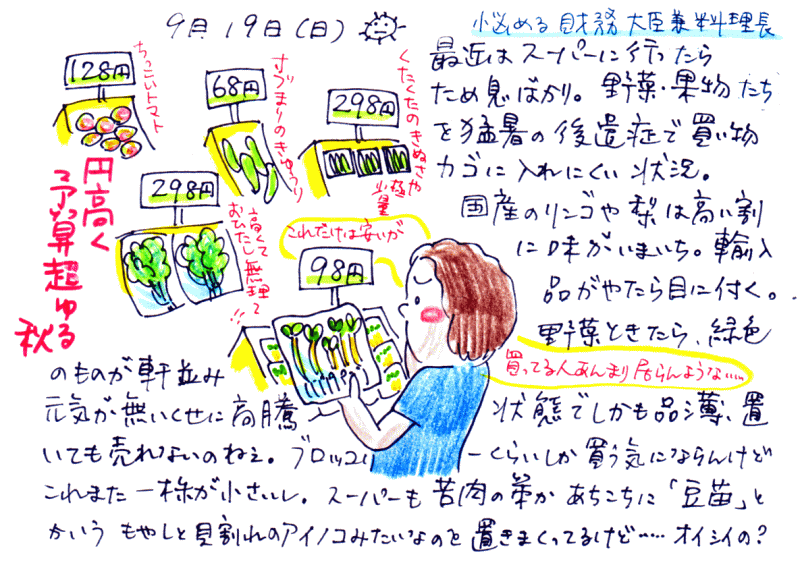 9月19日(日)
悩める財務大臣兼料理長
128円
ちっこいトマト
68円
寸づまりのきゅうり
298円
くたくたのきぬさや
少量
298円
高くておひたし無理って!!
円高く
予算超ゆる
秋
これだけは安いが
98円
買ってる人あんまり居らんような……
最近はスーパーに行ったら
ため息ばかり。野菜・果物たち
を猛暑の後遺症で買い物
カゴに入れにくい状況。
国産のリンゴや梨は高い割
に味がいまいち。輸入
品がやたら目に付く。
野菜ときたら、緑色
のものが軒並み
元気が無いくせに高騰状態でしかも品薄、置
いても売れないのねぇ。ブロッコリーくらいしか買う気にならんけど
これまた一株が小さいし。スーパーも苦肉の策かあちこちに「豆苗」と
かいうもやしと貝割れのアイノコみたいなのを置きまくってるけど……オイシイの?